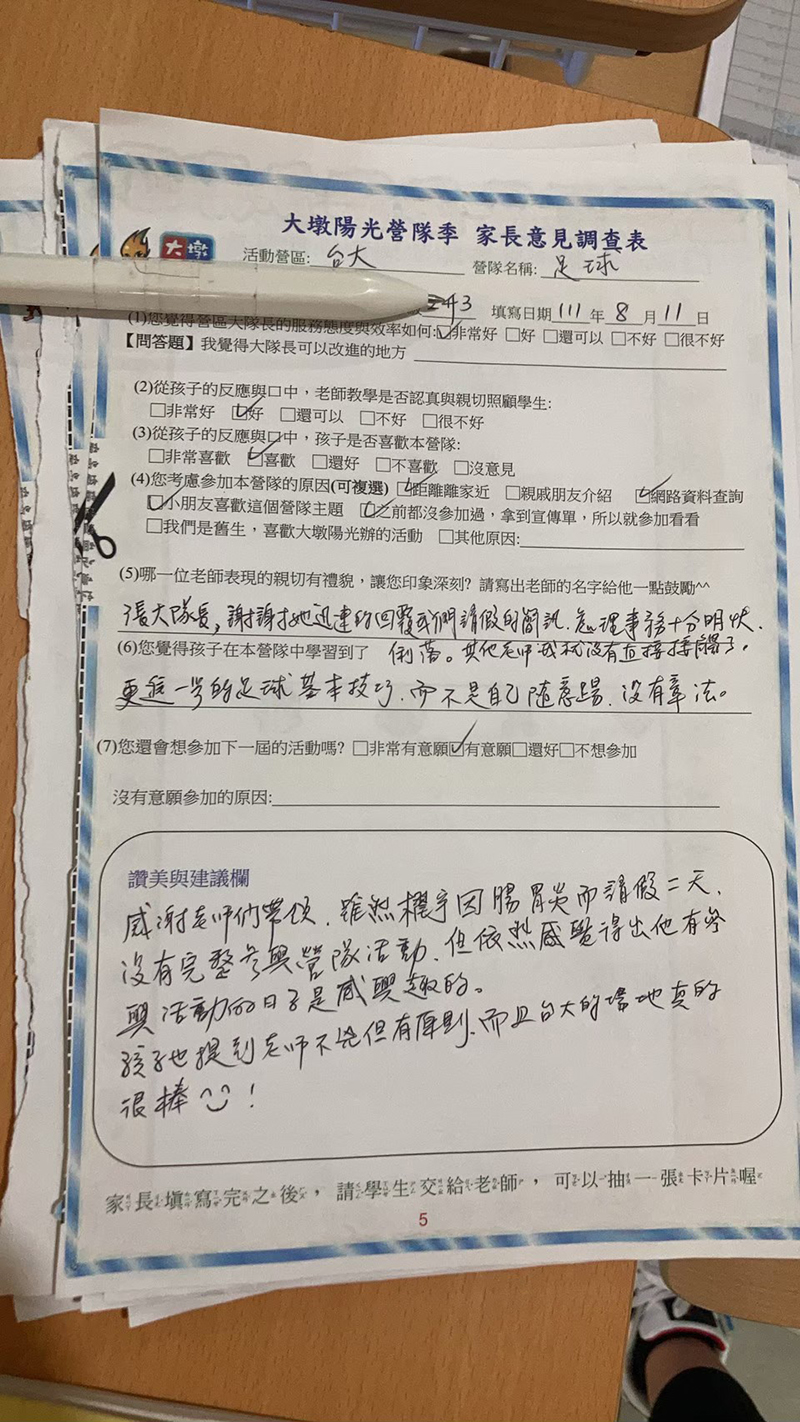 大墩陽光營隊季 家長意見調查表
大墩
活動營區: 台大 營隊名稱: 足球
243 填寫日期 111 年 8 月 11 日
(1)您覺得營區大隊長的服務態度與效率如何:☑非常好 □好 □還可以 □不好 □很不好
【問答題】我覺得大隊長可以改進的地方
(2)從孩子的反應與口中，老師教學是否認真與親切照顧學生:
□非常好 ☑好 □還可以 □不好 □很不好
(3)從孩子的反應與口中，孩子是否喜歡本營隊:
□非常喜歡 ☑喜歡 □還好 □不喜歡 □沒意見
(4)您考慮參加本營隊的原因(可複選) ☑距離離家近 □親戚朋友介紹 ☑網路資料查詢
☑小朋友喜歡這個營隊主題 ☑之前都沒參加過，拿到宣傳單，所以就參加看看
□我們是舊生，喜歡大墩陽光辦的活動 □其他原因:
(5)哪一位老師表現的親切有禮貌，讓您印象深刻? 請寫出老師的名字給他一點鼓勵^^
張大隊長, 謝謝她迅速的回覆我們請假的簡訊. 處理事務十分明快.
(6)您覺得孩子在本營隊中學習到了 俐落。其他老師我就沒有直接接觸了。
更進一步的足球基本技巧. 而不是自己隨意踢. 沒有章法。
(7)您還會想參加下一屆的活動嗎? □非常有意願☑有意願□還好□不想參加
沒有意願參加的原因:
讚美與建議欄
感謝老師們帶領. 雖然 宇因腸胃炎而請假二天.
沒有完整參與營隊活動. 但依然感覺得出他有參
與活動的日子是感興趣的。
孩子也提到老師不兇但有原則. 而且台大的場地真的
很棒 !
家長填寫完之後，請學生交給老師，可以抽一張卡片喔
5